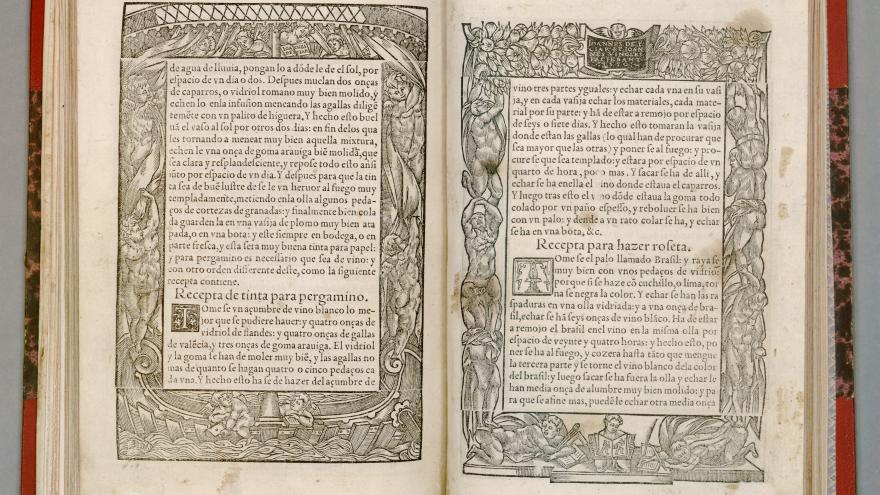 de agua de lluuia, pongan lo a dõde le de el sol, por
espacio de vn dia o dos. Despues muelan dos onças
de caparros, o vidriol romano muy bien molido, y
echen lo enla infusion meneando las agallas diligẽ
temẽte con vn palito de higuera, Y hecho esto buel
uã el vaso al sol por otros dos dias: en fin delos qua
les tornando a menear muy bien aquella mixtura,
echen le vna onça de goma arauiga biẽ molida, que
sea clara y resplandesciente, y repose todo esto ansi
iũto por espacio de vn dia. Y despues para que la tin
ta sea de buẽ lustre de se le vn heruor al fuego muy
templadamente, metiendo enla olla algunos peda-
ços de cortezas de granadas: y finalmente bien cola
da guarden la en vna vasija de plomo muy bien ata
pada, o en vna bota: y este siempre en bodega, o en
parte fresca, y esta sera muy buena tinta para papel:
y para pergamino es necessario que sea de vino: y
con otro orden differente deste, como la siguiente
recepta contiene.
Recepta de tinta para pergamino.
TOme se vn açumbre de vino blanco lo me-
jor que se pudiere hauer: y quatro onças de
vidriol de flandes: y quatro onças de gallas
de valẽcia, y tres onças de goma arauiga. El vidriol
y la goma se han de moler muy biẽ, y las agallas no
mas de quanto se hagan quatro o cinco pedaços ca
da vna. Y hecho esto ha se de hazer del açumbre de
IOANNES DE Y
CIAR ET IOAN
NES VINGLES
FACIEBANT
vino tres partes yguales: y echar cada vna en su vasi
ja, y en cada vasija echar los materiales, cada mate-
rial por su parte: y hã de estar a remojo por espacio
de seys o siete dias. Y hecho esto tomaran la vasija
donde estan las gallas (lo qual han de procurar que
sea mayor que las otras) y poner se al fuego: y pro-
cure se que sea templado: y estara por espacio de vn
quarto de hora, poco mas. Y sacar se ha de alli, y
echar se ha enella el vino donde estaua el caparros.
Y luego tras esto el vino dõde estaua la goma todo
colado por vn paño espesso, y reboluer se ha bien
con vn palo: y dende a vn rato colar se ha, y echar
se ha en vna bõta, &c.
Recepta para hazer roseta.
TOme se el palo llamado Brasil: y raya se
muy bien con vnos pedaços de vidrios
porque si se haze cõ cuchillo, o lima, tor
na se negra la color. Y echar se han las ra
spaduras en vna olla vidriada: y a vna onça de bra-
sil, echar se hã seys onças de vino blãco. Ha de estar
a remojo el brasil enel vino en la misma olla por
espacio de veynte y quatro horas: y hecho esto, po
ner se ha al fuego, y cozera hasta tãto que mengue
la tercera parte y se torne el vino blanco dela color
del brasil: y luego sacar se ha fuera la olla y echar le
han media onça de alumbre muy bien molido: y pa
ra que se afine mas, puedẽ le echar otra media onça